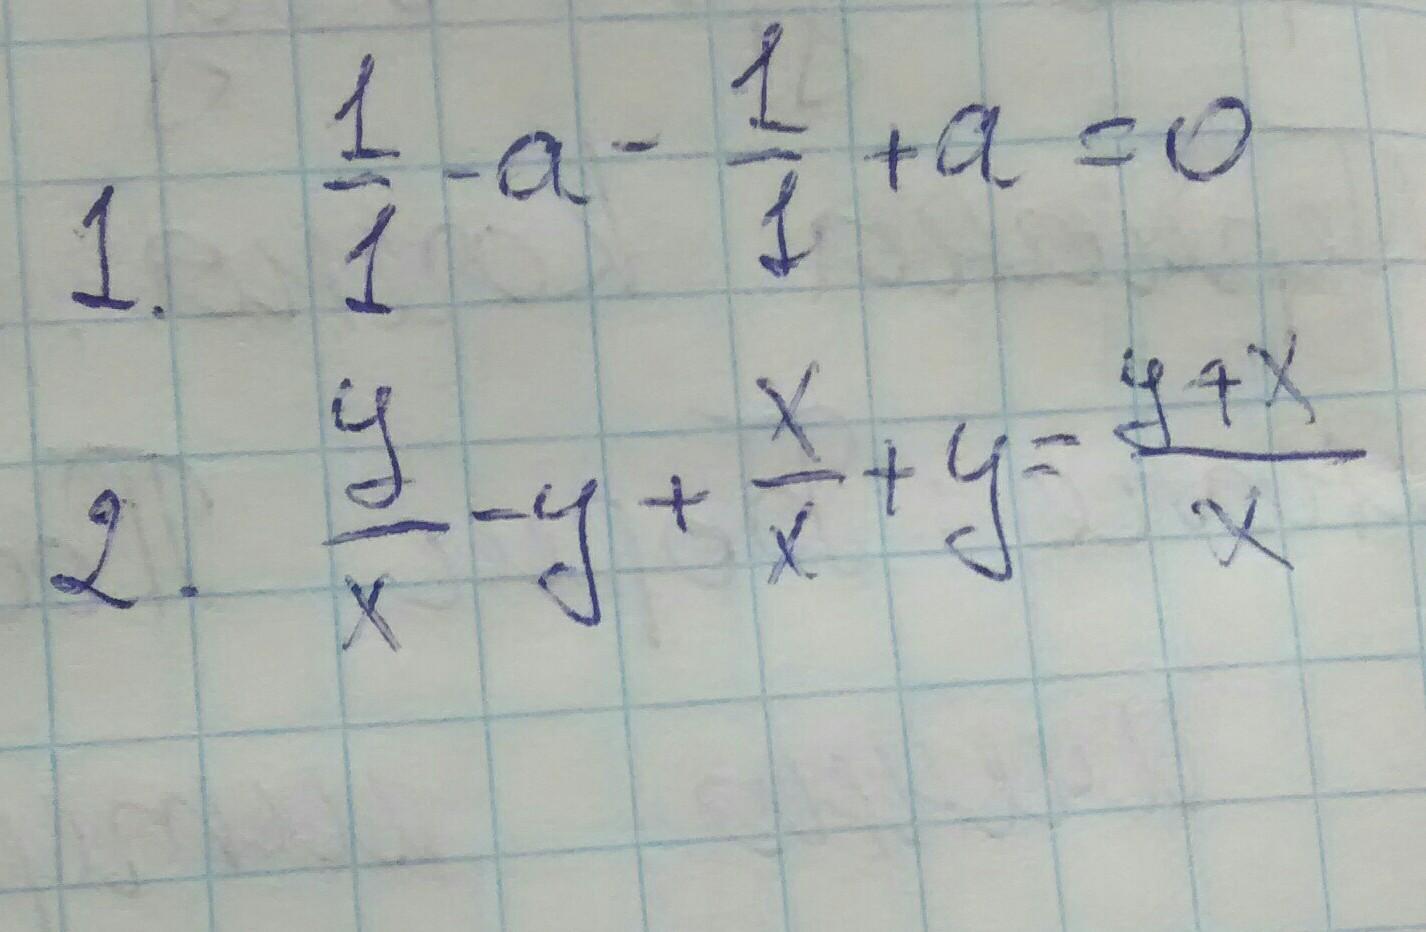 1. 1/1 - a - 1/1 + a = 0
2. y/x - y + x/x + y = y+x/x